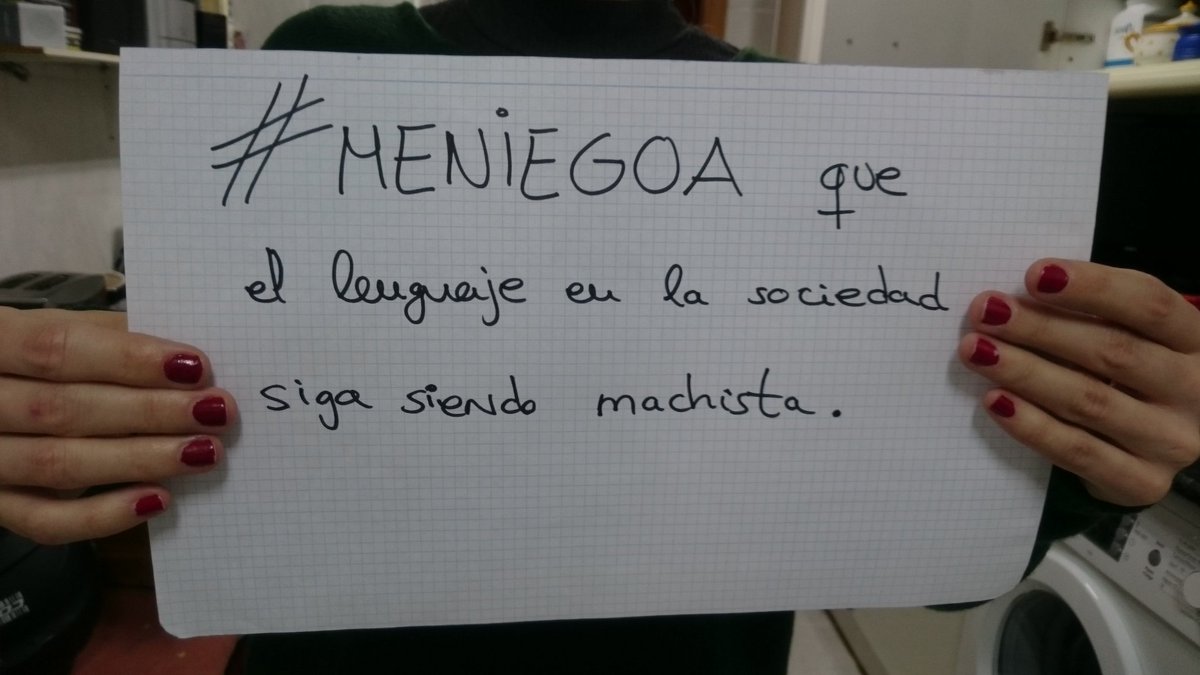 #MENiEGOA que
el lenguaje en la sociedad
siga siendo machista.